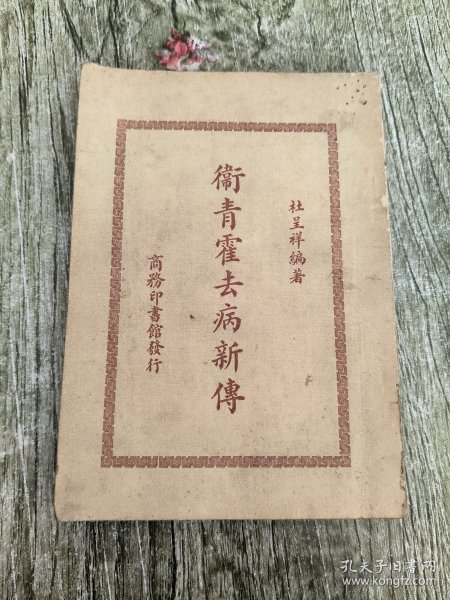 杜呈祥編著
衞青霍去病新傳
商務印書館發行
孔夫子旧书网
www.kongfz.com